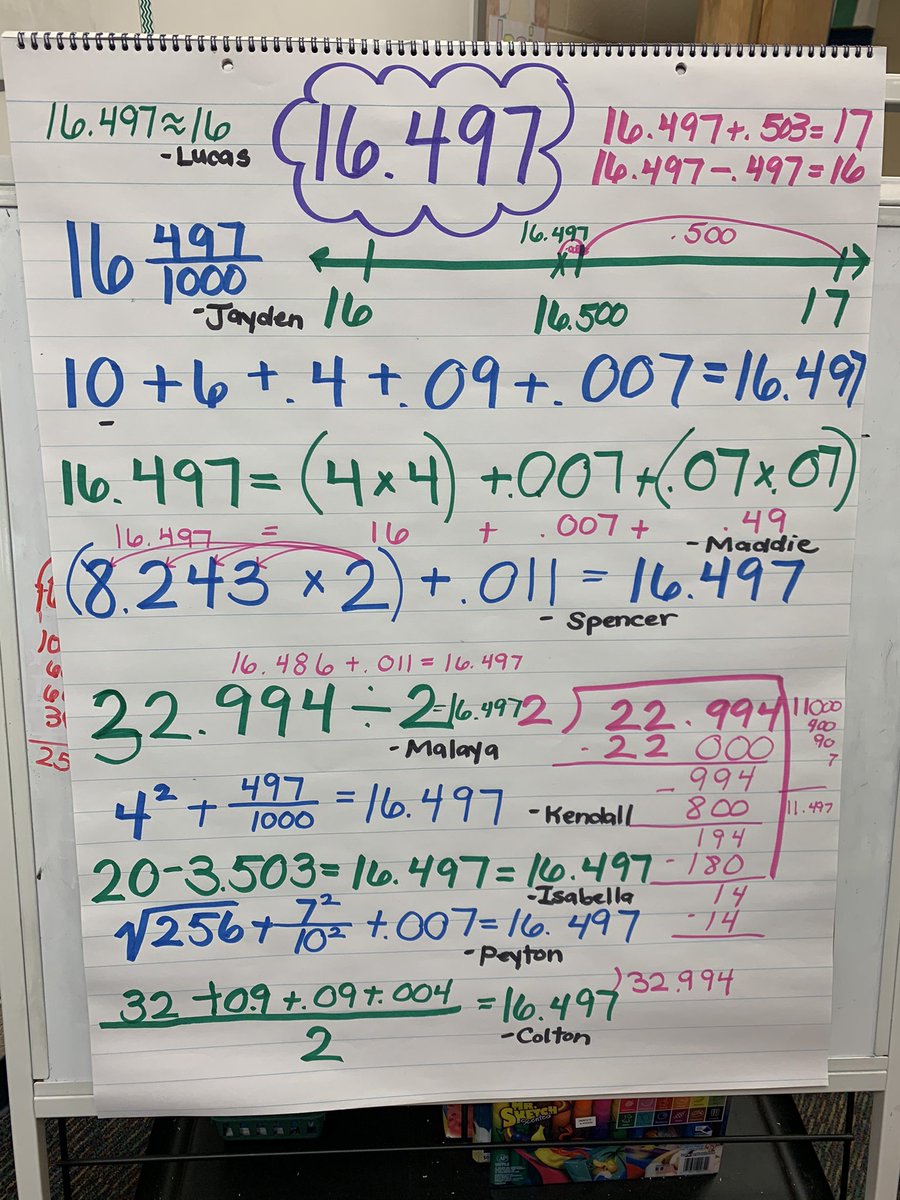 16.497≈16
-Lucas
16.497
16.497+.503=17
16.497-.497=16
16 497/1000
-Jayden
16.497
.500
16
16.500
17
10+6+.4+.09+.007=16.497
16.497=(4×4)+.007+(.07×.07)
16.497 = 16 + .007+ .49
-Maddie
(8.243 ×2)+.011=16.497
- Spencer
16.486+.011=16.497
32.994÷2=16.497
-Malaya
2)22.994
-22 000
-994
800
194
-180
14
-14
11000
900
90
7
11.497
4²+497/1000=16.497
-Kendall
20-3.503=16.497=16.497
-Isabella
√256+7²/10²+.007=16.497
-Peyton
)32.994
32+0.9+.09+.004/2=16.497
-Colton
MR. SKETCH
Scented